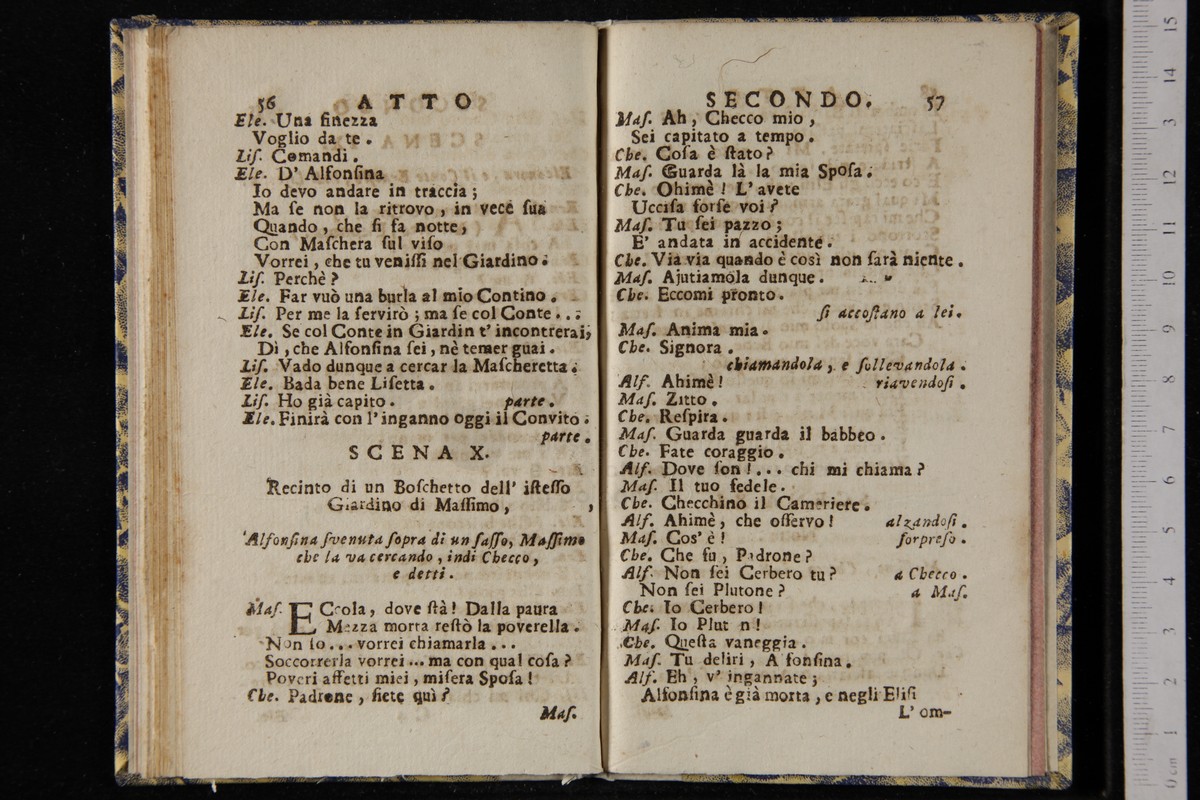 56 ATTO
Ele. Una finezza
Voglio da te .
Liſ. Comandi .
Ele. D' Alfonſina
Io devo andare in traccia ;
Ma ſe non la ritrovo , in vece ſua
Quando , che ſi fa notte ,
Con Maſchera ſul viſo
Vorrei , che tu veniſſi nel Giardino .
Liſ. Perchè ?
Ele. Far vuò una burla al mio Contino .
Liſ. Per me la ſervirò ; ma ſe col Conte . . .
Ele. Se col Conte in Giardin t' incontrerai,
Dì , che Alfonſina ſei , nè temer guai .
Liſ. Vado dunque a cercar la Maſcheretta .
Ele. Bada bene Liſetta .
Liſ. Ho già capito . parte .
Ele. Finirà con l' inganno oggi il Convito .
parte .
SCENA X.
Recinto di un Boſchetto dell' iſteſſo
Giardino di Maſſimo ,
Alfonſina ſvenuta ſopra di un ſaſſo, Maſſimo
che la va cercando , indi Checco ,
e detti .
Maſ. ECcola, dove ſtà! Dalla paura
Mezza morta reſtò la poverella .
Non ſo . . . vorrei chiamarla . . .
Soccorrerla vorrei ... ma con qual coſa ?
Poveri affetti miei , miſera Spoſa !
Che. Padrone , ſiete quì ?
Maſ.
SECONDO. 57
Maſ. Ah , Checco mio ,
Sei capitato a tempo .
Che. Coſa è ſtato ?
Maſ. Guarda là la mia Spoſa .
Che. Ohimè ! L' avete
Ucciſa forſe voi ?
Maſ. Tu ſei pazzo ;
E' andata in accidente .
Che. Via via quando è così non ſarà niente .
Maſ. Ajutiamola dunque .
Che. Eccomi pronto .
ſi accoſtano a lei.
Maſ. Anima mia .
Che. Signora .
chiamandola , e ſollevandola .
Alf. Ahimè ! riavendoſi .
Maſ. Zitto .
Che. Reſpira .
Maſ. Guarda guarda il babbeo .
Che. Fate coraggio .
Alf. Dove ſon ! . . . chi mi chiama ?
Maſ. Il tuo fedele .
Che. Checchino il Cameriere .
Alf. Ahimè , che oſſervo ! alzandoſi .
Maſ. Cos' è ! ſorpreſo .
Che. Che fu , Padrone ?
Alf. Non ſei Cerbero tu ? a Checco .
Non ſei Plutone ? a Maſ.
Che. Io Cerbero !
Maſ. Io Plut n !
Che. Queſta vaneggia .
Maſ. Tu deliri , A fonſina .
Alf. Eh , v' ingannate ;
Alfonſina è già morta , e negli Eliſi
L' om-